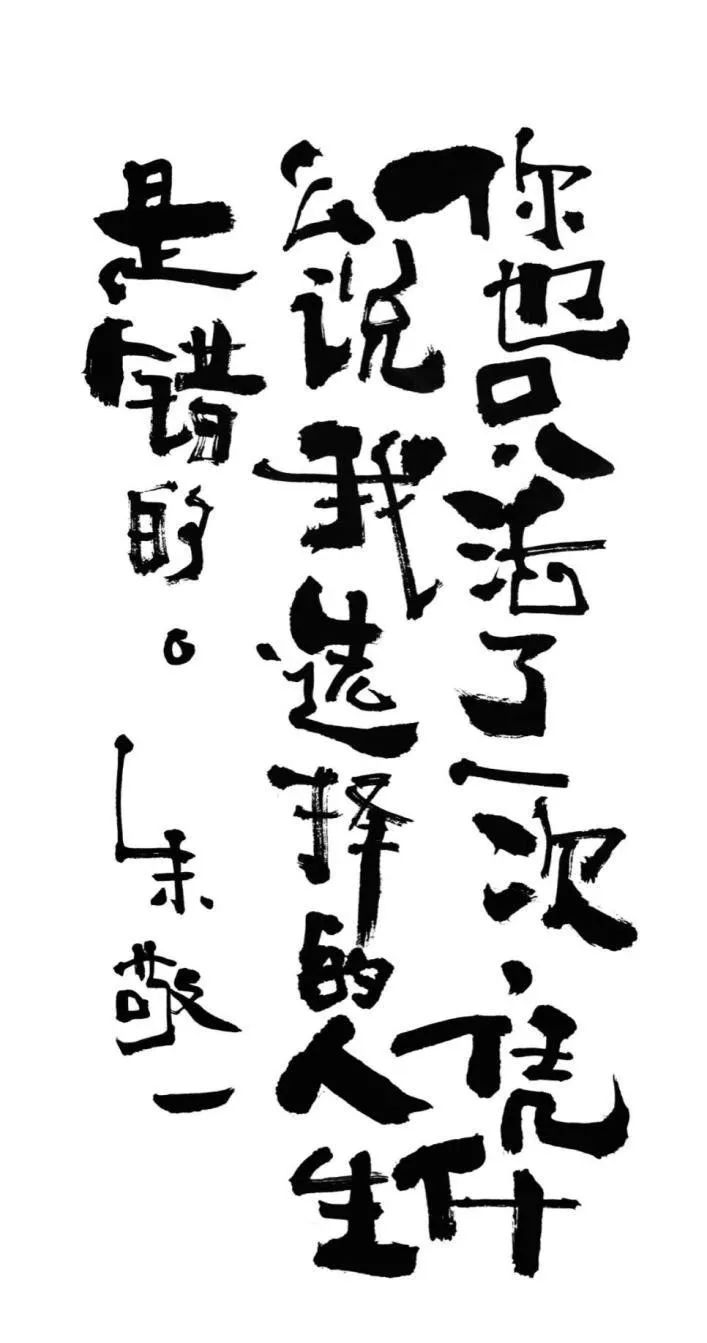 你也只活了一次，凭什
么说我选择的人生
是错的。朱敬一